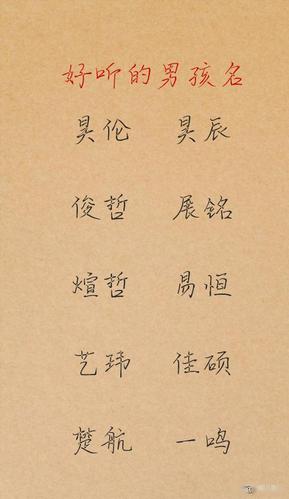 好听的男孩名
昊伦 昊辰
俊哲 展铭
煊哲 易恒
艺玮 佳硕
楚航 一鸣